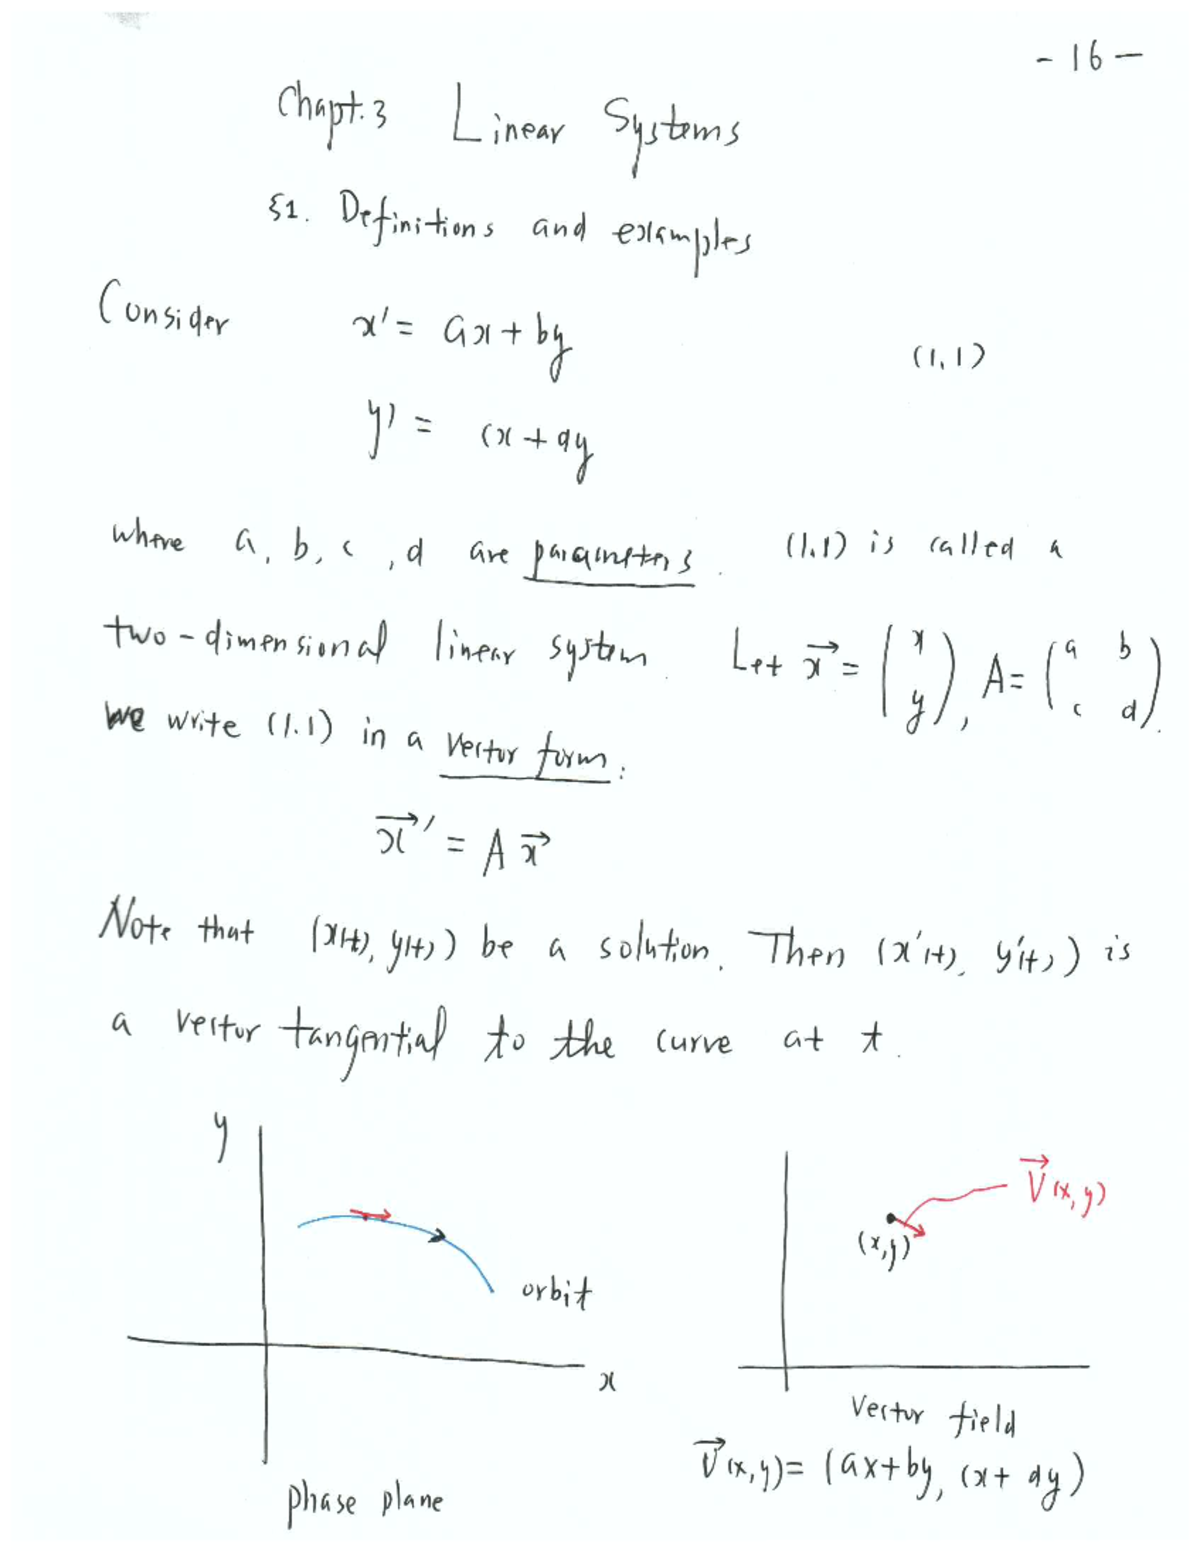 - 16 -
Chapt.3 Linear Systems
§1. Definitions and examples
Consider x' = ax + by (1.1)
y' = cx + dy
where a, b, c, d are parameters. (1.1) is called a
two-dimensional linear system. Let x⃗ = (x y), A = (a b c d).
We write (1.1) in a vector form:
x⃗' = A x⃗
Note that (x(t), y(t)) be a solution. Then (x'(t), y'(t)) is
a vector tangential to the curve at t.
y
orbit
x
phase plane
V⃗(x,y)
(x,y)
Vector field
V⃗(x,y) = (ax+by, cx+dy)